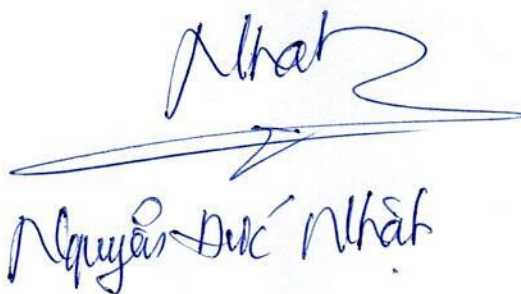 Nhat
Nguyễn Đức Nhật